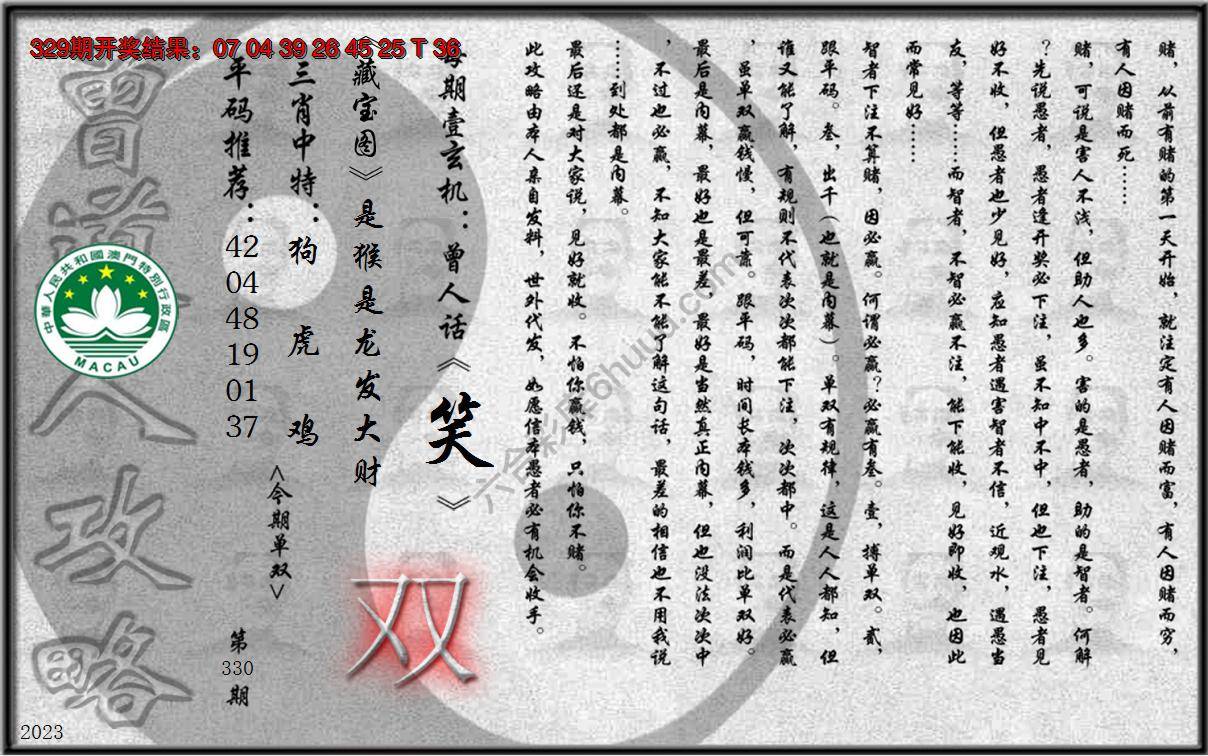 329期开奖结果：07 04 39 26 45 25 T 36
赌，从前有赌的第一天开始，就注定有人因赌而富，有人因赌而穷，
有人因赌而死……
赌，可说是害人不浅，但助人也多。害的是愚者，助的是智者。何解
？先说愚者，愚者逢开奖必下注，虽不知中不中，但也下注，愚者见
好不收，但愚者也少见好，应知愚者遇害智者不信，近观水，遇愚当
友，等等……而智者，不智必赢不注，能下能收，见好即收，也因此
而常见好……
智者下注不算赌，因必赢。何谓必赢？必赢有叁。壹，搏单双。贰，
跟平码。叁，出千（也就是内幕）。单双有规律，这是人人都知，但
谁又能了解，有规则不代表次次都能下注，次次都中。而是代表必赢
，虽单双赢钱慢，但可靠。跟平码，时间长本钱多，利润比单双好。
最后是内幕，最好也是最差，最好是当然真正内幕，但也没法次次中
，不过也必赢，不知大家能不能了解这句话，最差的相信也不用我说
……到处都是内幕。
最后还是对大家说，见好就收。不怕你赢钱，只怕你不赌。
此攻略由本人亲自发料，世外代发，如愿信本愚者必有机会收手。
每期壹玄机：曾人话《笑》
《藏宝图》是猴是龙发大财
双
三肖中特：狗 虎 鸡
<今期单双>
平码推荐：42 04 48 19 01 37
第330期
曾道人攻略
中華人民共和國澳門特別行政區
MACAU
六合彩库6huuu.com
2023